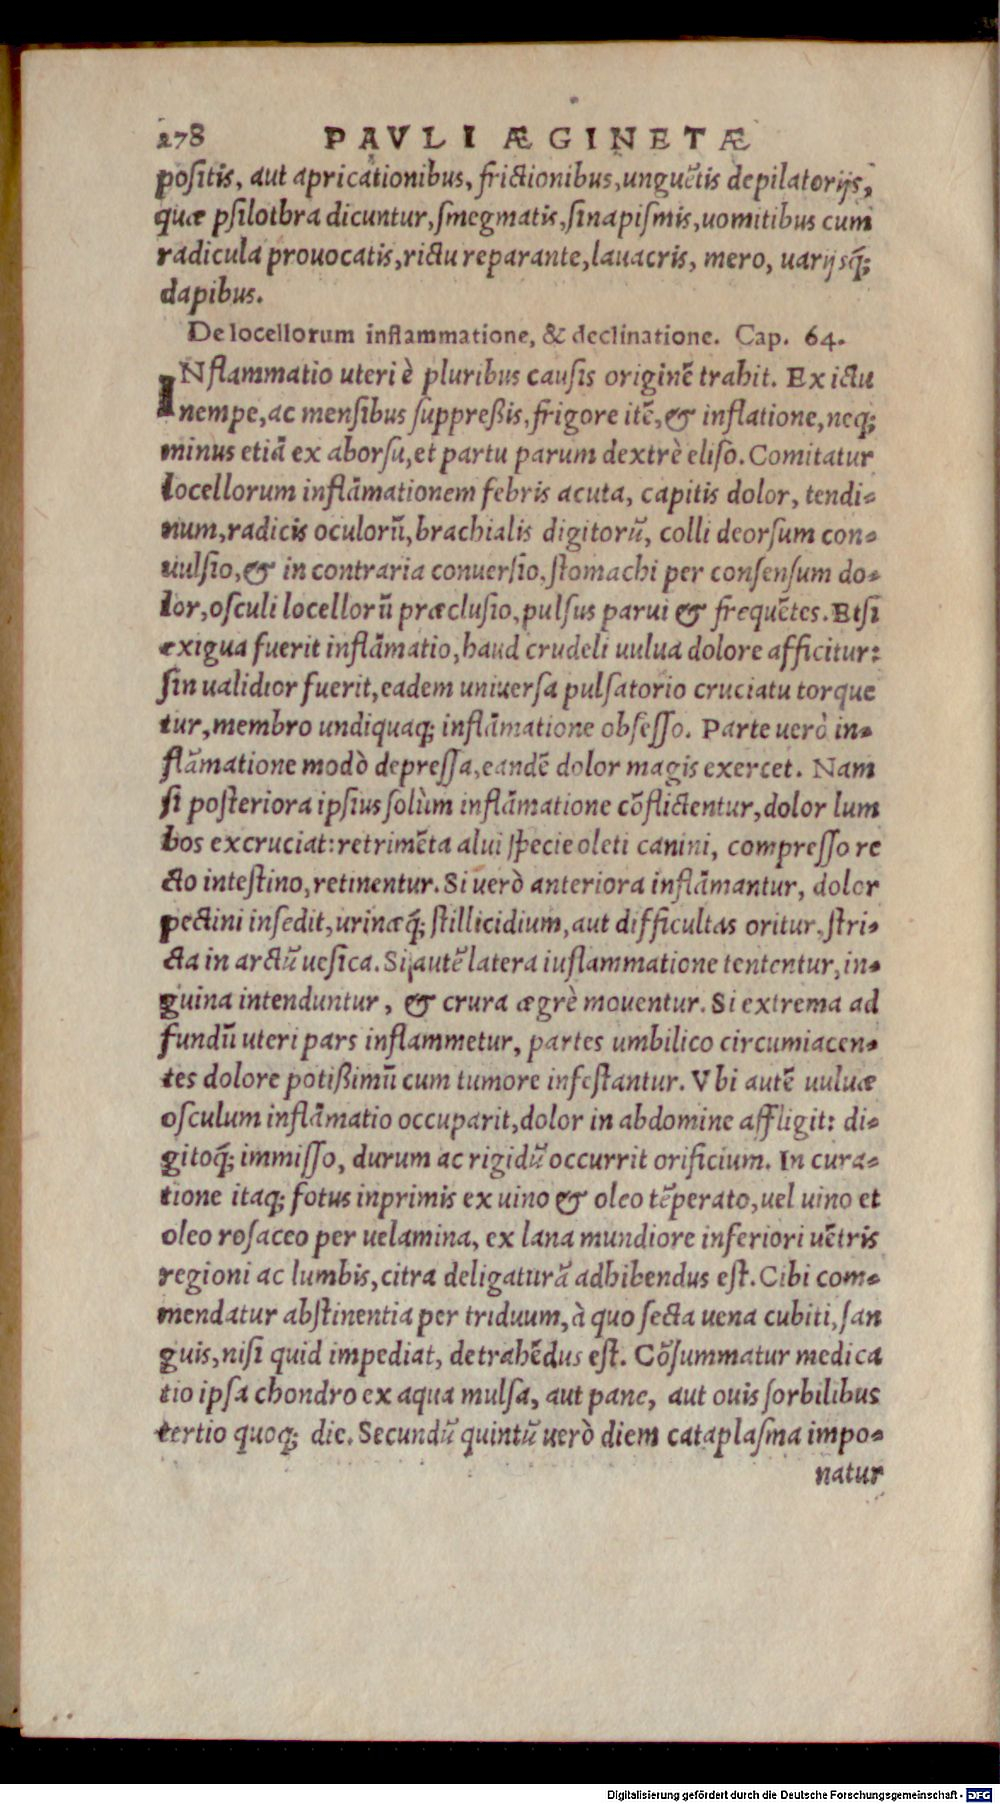 278 PAVLI ÆGINETÆ
positis, aut apricationibus, frictionibus, unguẽtis depilatorijs,
quæ psilothra dicuntur, smegmatis, sinapismis, uomitibus cum
radicula prouocatis, rictu reparante, lauacris, mero, uarijsq́;
dapibus.
De locellorum inflammatione, & declinatione. Cap. 64.
INflammatio uteri è pluribus causis originẽ trahit. Ex ictu
nempe, ac mensibus suppreßis, frigore itẽ, & inflatione, neq;
minus etiã ex aborsu, et partu parum dextrè eliso. Comitatur
locellorum inflãmationem febris acuta, capitis dolor, tendi-
num, radicis oculorũ, brachialis digitorũ, colli deorsum con-
uulsio, & in contraria conuersio, stomachi per consensum do-
lor, osculi locellorũ præclusio, pulsus parui & frequẽtes. Etsi
exigua fuerit inflãmatio, haud crudeli uulua dolore afficitur:
sin ualidior fuerit, eadem uniuersa pulsatorio cruciatu torque
tur, membro undiquaq; inflãmatione obsesso. Parte uerò in-
flãmatione modò depressa, eandẽ dolor magis exercet. Nam
si posteriora ipsius solùm inflãmatione cõflictentur, dolor lum
bos excruciat: retrimẽta alui specie oleti canini, compresso re
cto intestino, retinentur. Si uerò anteriora inflãmantur, dolor
pectini insedit, urinæq́; stillicidium, aut difficultas oritur, stri-
cta in arctũ uesica. Si autẽ latera iuflammatione tententur, in-
guina intenduntur, & crura ægrè mouentur. Si extrema ad
fundũ uteri pars inflammetur, partes umbilico circumiacen-
tes dolore potißimũ cum tumore infestantur. Vbi autẽ uuluæ
osculum inflãmatio occuparit, dolor in abdomine affligit: di-
gitoq́; immisso, durum ac rigidũ occurrit orificium. In cura-
tione itaq; fotus inprimis ex uino & oleo tẽperato, uel uino et
oleo rosaceo per uelamina, ex lana mundiore inferiori uẽtris
regioni ac lumbis, citra deligaturã adhibendus est. Cibi com-
mendatur abstinentia per triduum, à quo secta uena cubiti, san
guis, nisi quid impediat, detrahẽdus est. Cõsummatur medica
tio ipsa chondro ex aqua mulsa, aut pane, aut ouis sorbilibus
tertio quoq; die. Secundũ quintũ uerò diem cataplasma impo-
natur
Digitalisierung gefördert durch die Deutsche Forschungsgemeinschaft - DFG